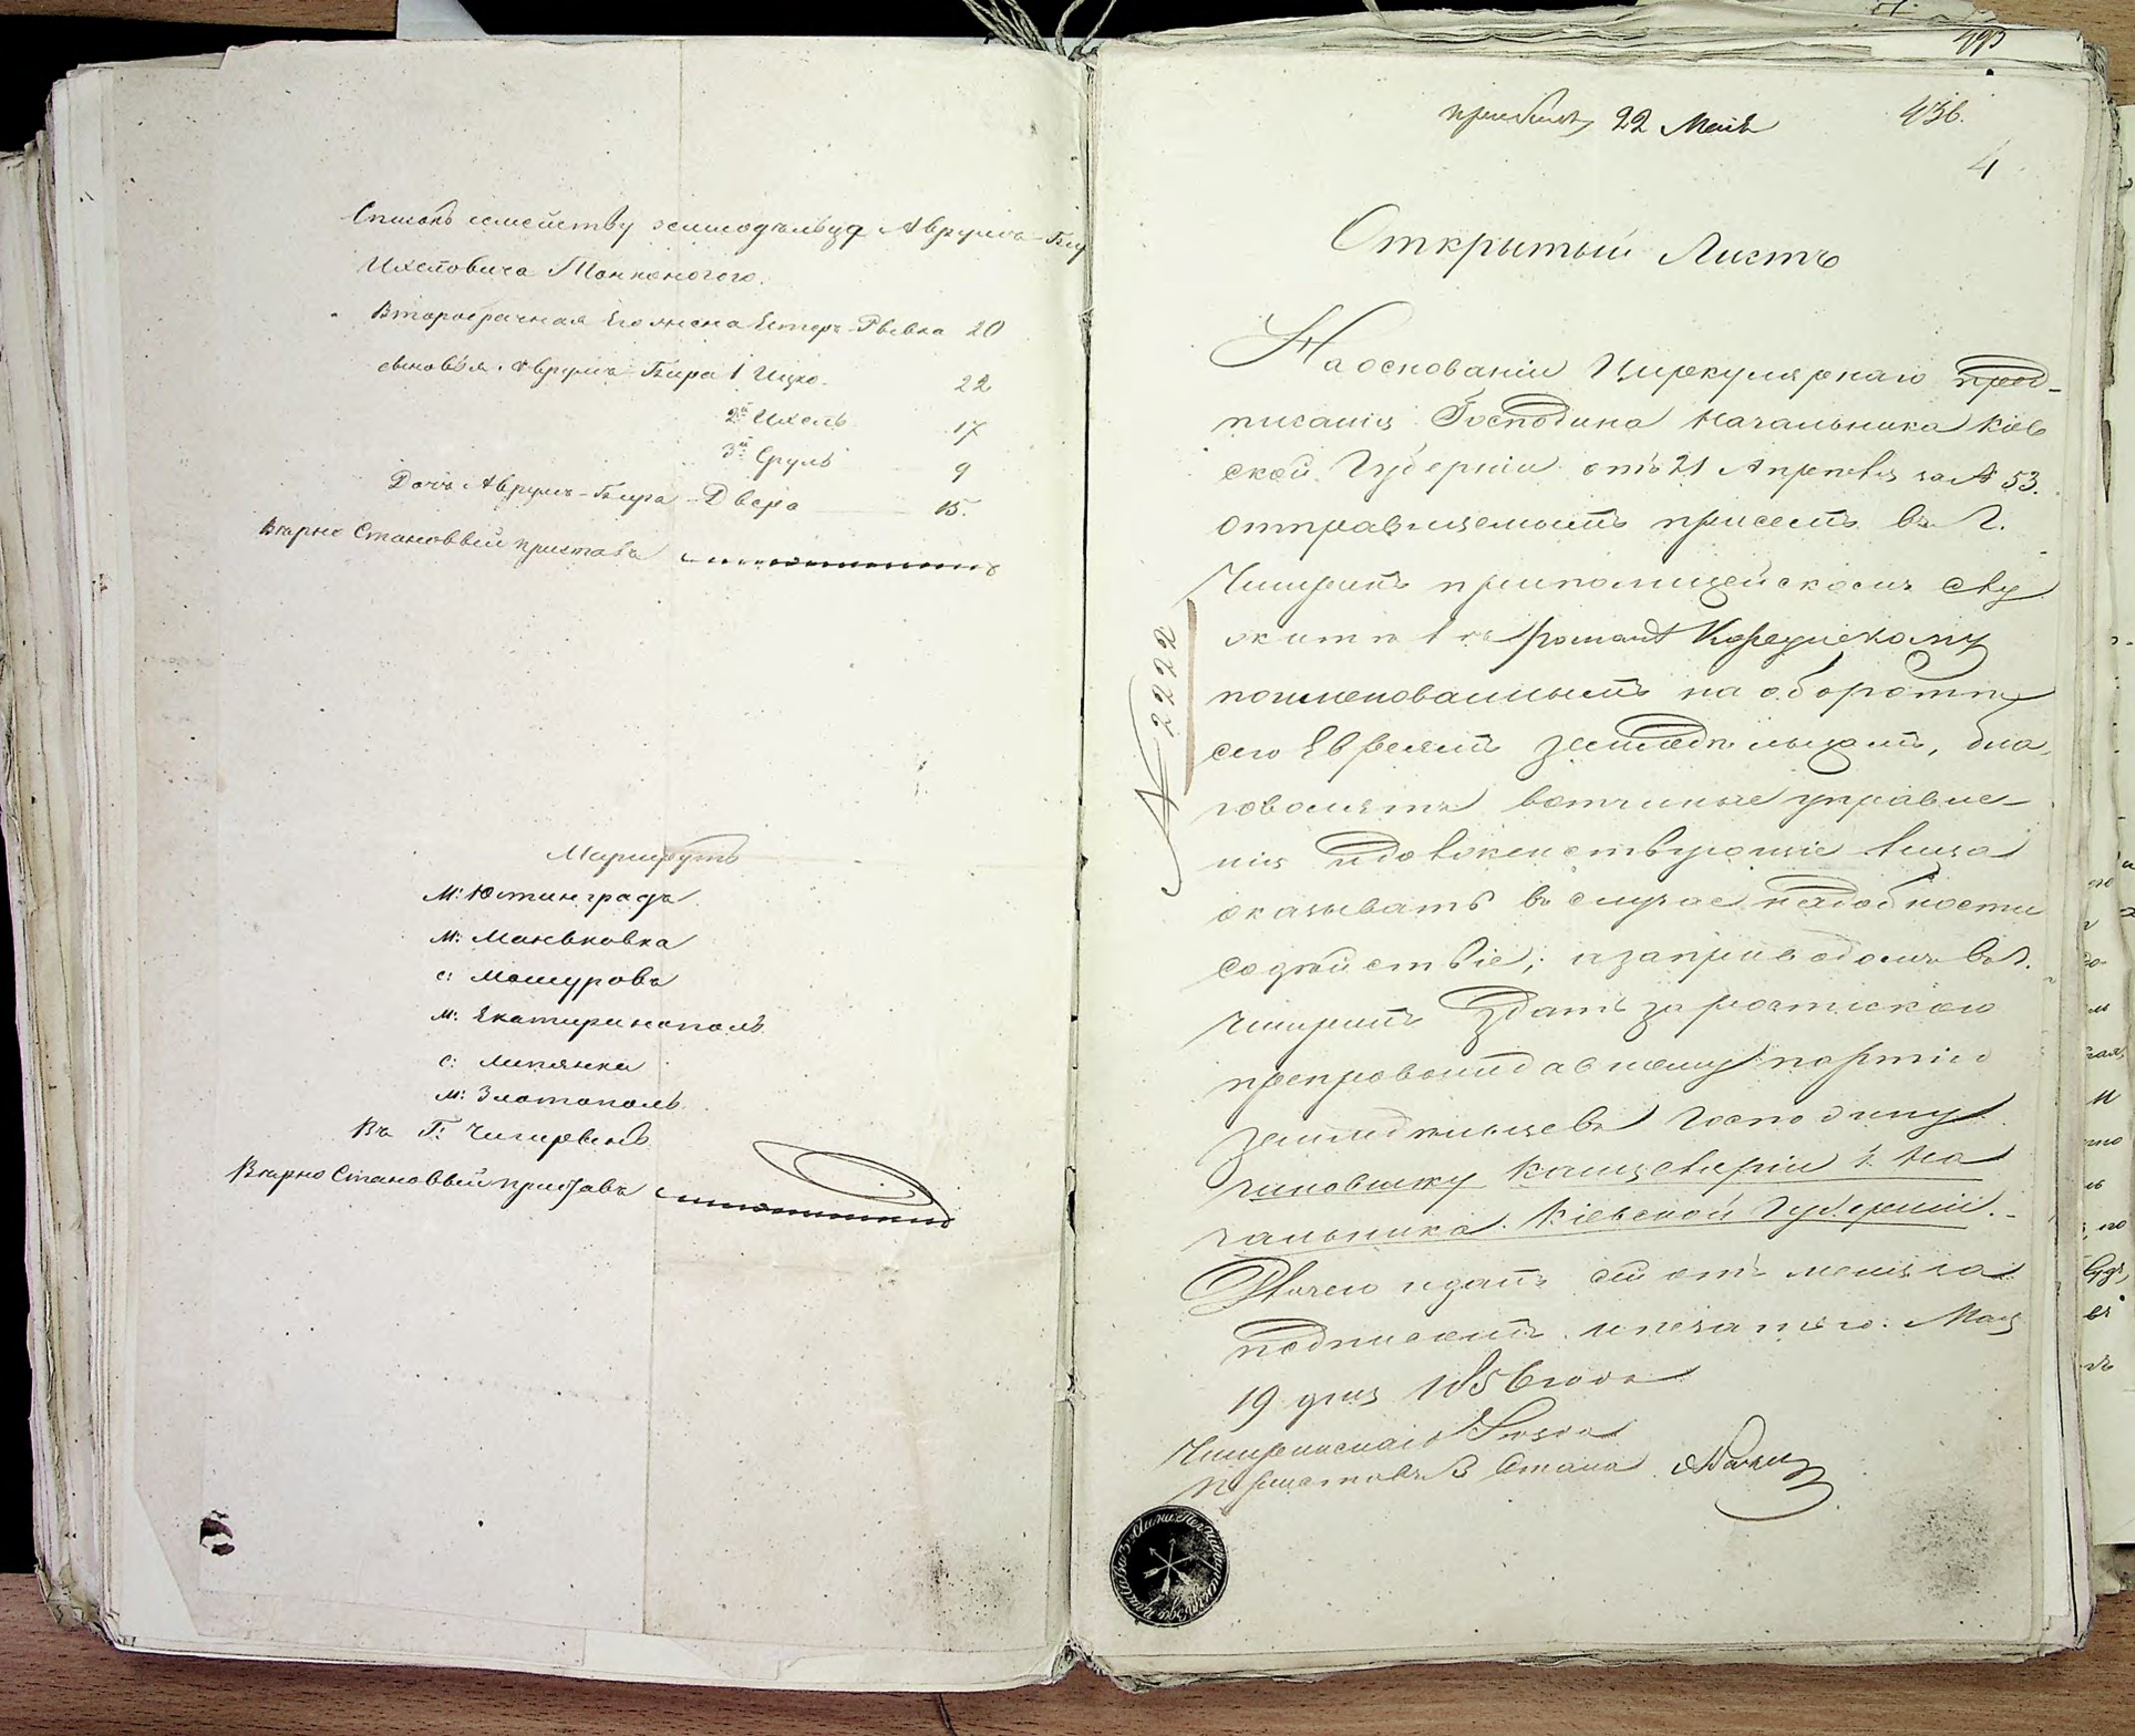 Списокъ семейству земледѣльца Аврумъ-Бер
Ихелевича Тонконогого.
Второбрачная его жена Естеръ-Ривка 20
сыновья Аврумъ-Бера 1 Ицко 22
2й Ихель 17
3й Сруль 9
Дочь Аврумъ-Бера Двера 15.
Вѣрно Становый приставъ
Маршрутъ
М: Юстинградъ
М: Маньковка
с: Машурова
М: Екатеринополь
с: Липянка
М: Златополь
Въ Г: Чигиринъ
Вѣрно Становый приставъ
22 Мая 436.
4
Открытый Листъ
На основаніи Циркулярнаго пред-
писанія Господина Начальника Кіев
ской Губерніи отъ 21 Апреля за № 53.
отправляемымъ при семъ въ Г.
Чигиринъ при полицейскомъ слу
жителѣ
поименованнымъ на оборотѣ
сего Евреямъ земледѣльцамъ, бла-
говолятъ вотчинные управле-
нія и до
оказывать въ случае надобности
содѣйствіе; и за приводомъ въ Г.
Чигиринъ здать за роспискою
препровождавшему партію
земледѣльцевъ Господину
чиновнику Канцеляріи г. На
чальника Кіевской Губерніи.
въ чемъ и данъ сей отъ меня за
подписомъ и печатью. Мая
19 дня 1856 года
Чигиринскаго уѣзда
Приставъ 3 Стана
№ 2222